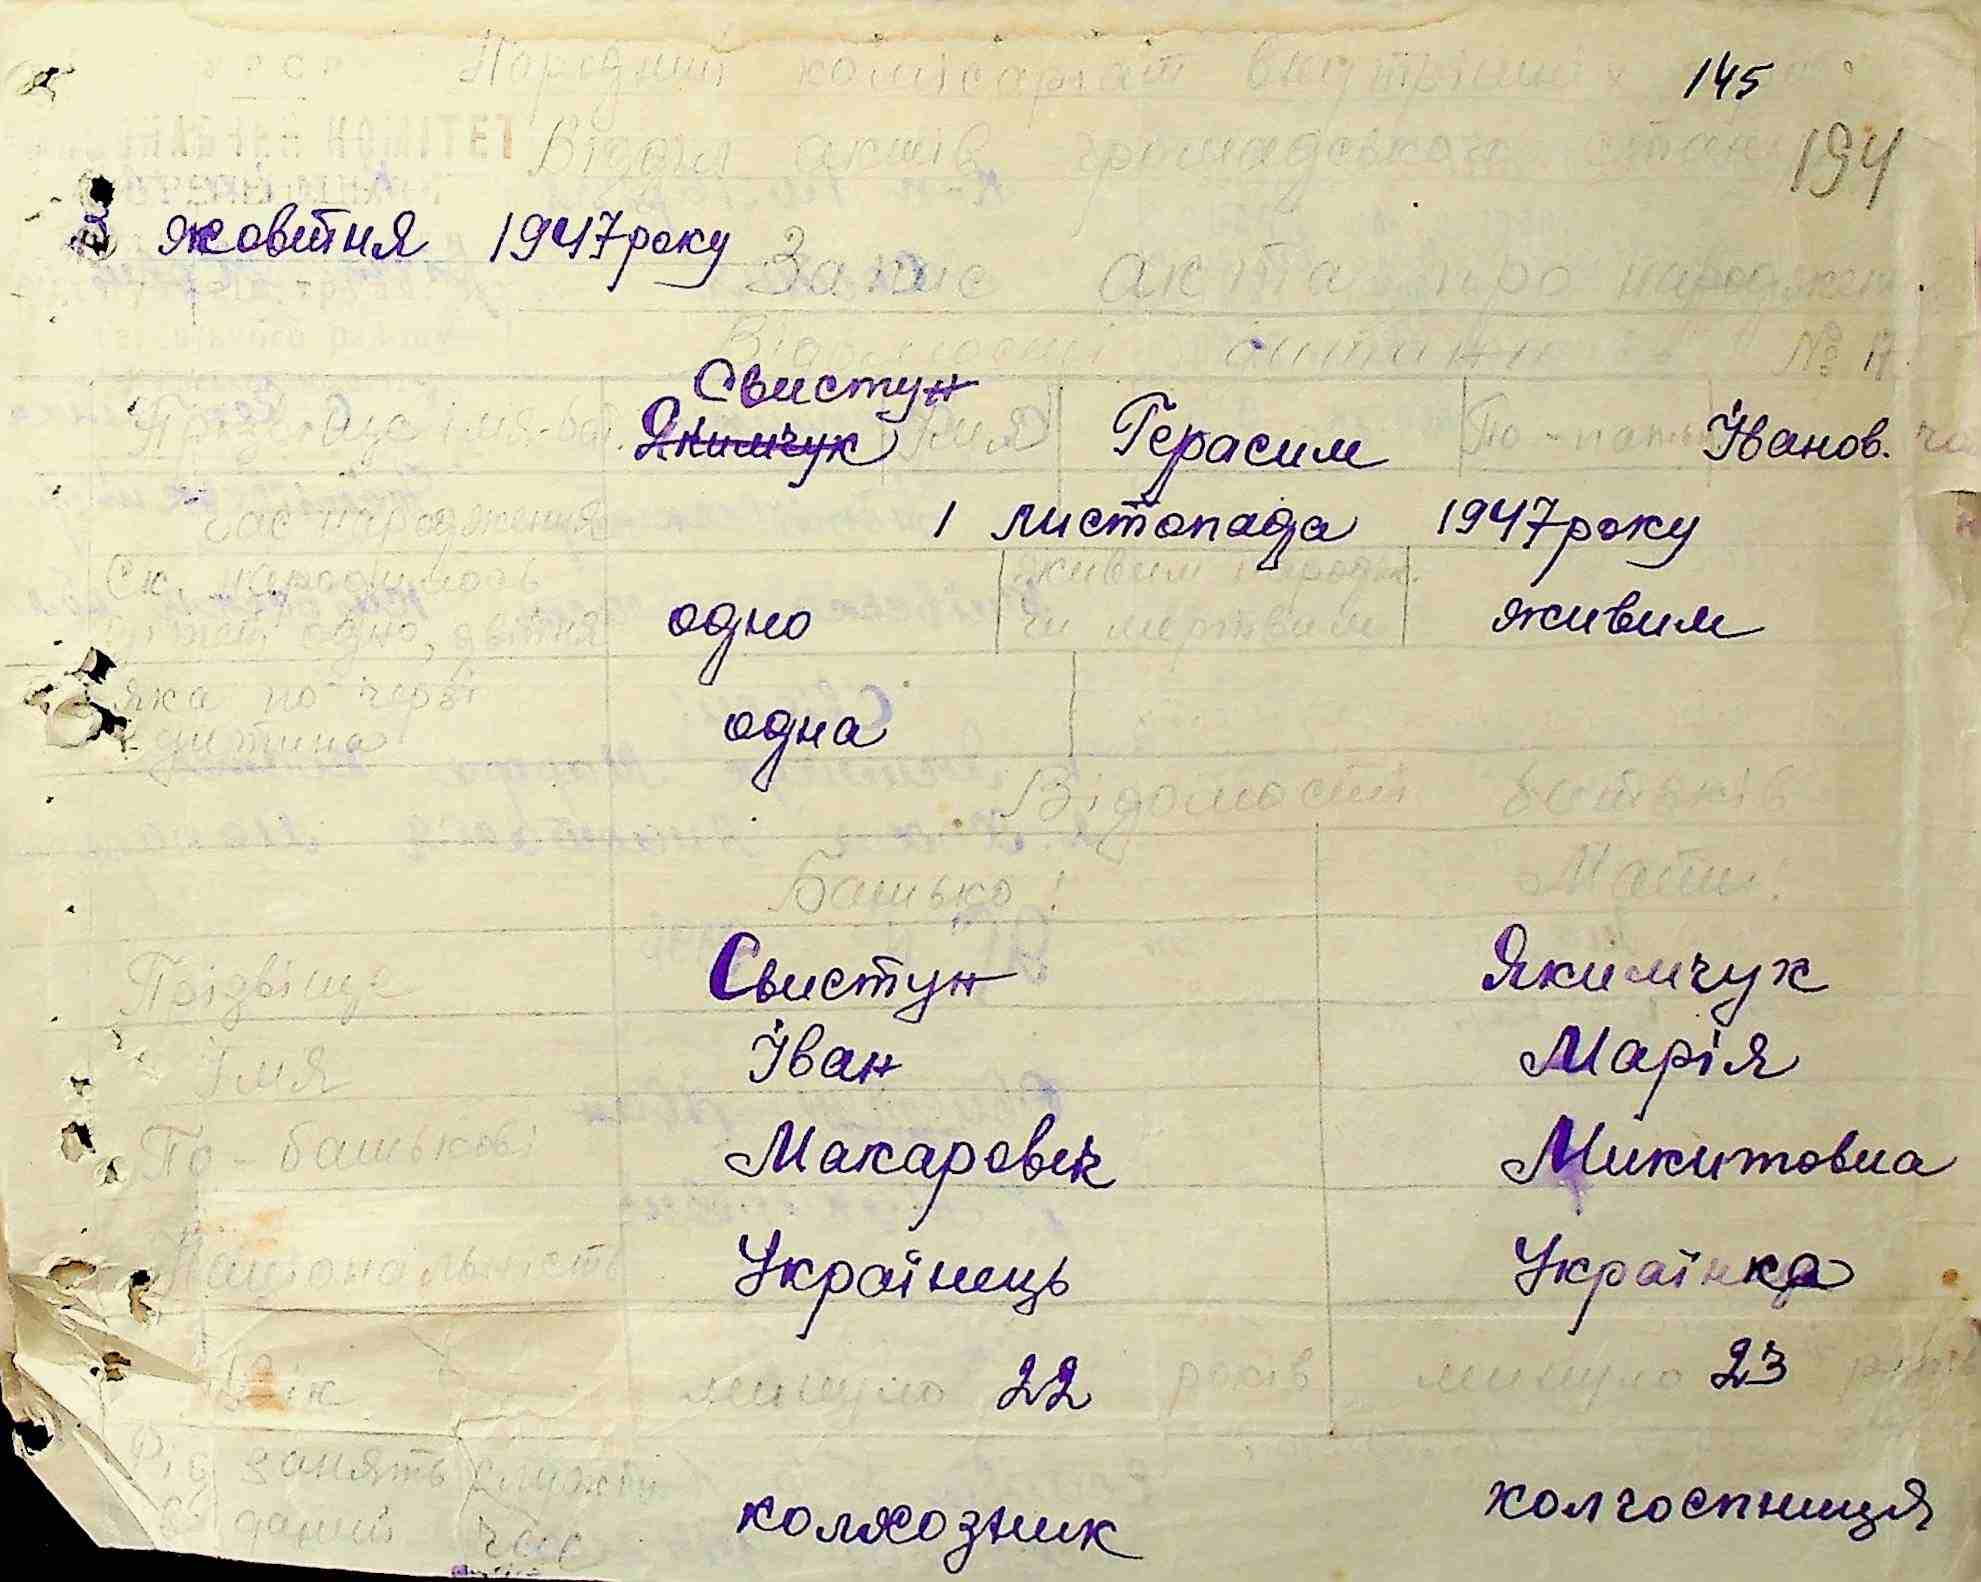 Народний комісаріат внутрішніх 145
Відділ актів громадського стану 194
жовтня 1947 року
Запис акта про народжен
Відомості дитини №
Свистун
Прізвище імя-бат. Якимчук Імя Герасим По-батьк Іванов.
Час народження 1 листопада 1947 року
Ск. народилось живим народж.
дітей одно, двійня одно чи мертвим живим
яка по черзі
дитина одна
Відомості батьків
Батько: Мати:
Прізвіще Свистун Якимчук
Імя Іван Марія
По-батькові Макарович Микитовна
Національність Українець Українка
Вік минуло 22 років минуло 23 років
Рід занять (служби
в даний час колхозник колгоспниця